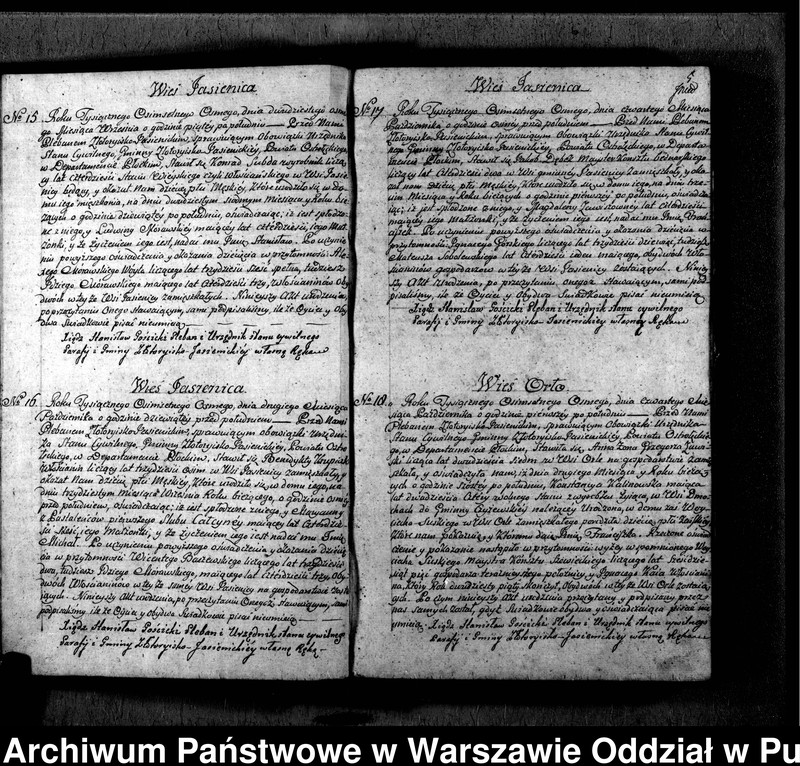 Wieś Jasienica
No 15 Roku Tysiącznego Osimsetnego Osmego, dnia dwudziestego
go Miesiąca Września o godzinie piątey popołudniu Przed Nami
Plebanem Złotorysko-Jasienickim, sprawuiącym Obowiązki Urzędnika
Stanu Cywilnego, Gminny Złotorysko Jasienickiey, Powiatu Ostrołęckiego
w Departamencie Płockim, Stawił się Konrad wyrobnik liczą-
cy lat czterdzieści Stanu czyli Włościańskiego w Wsi Jasie-
nicy będący, y okazał Nam dziecię płci Męskiey, Które urodziło się w do-
mu iego mieszkania, na dniu dwudziestym siodmym Miesiąca y Roku bie-
żącym o godzinie dziewiątey po południu, oświadczaiąc, iż iest spłodzo-
ne z niego, y Ludwiny maiącey lat czterdzieści, iego Mał-
żonki, y że życzeniem iego iest, nadać mu Imię Stanisław. Po uczynie-
niu powyższego oświadczenia y okazania dziecięcia w przytomności
Morawskiego Woyta liczącego lat trzydzieści sześć, tudzież
Morawskiego maiącego lat czterdzieści trzy, Włościaninów Oby-
dwóch w tyże Wsi Jasienicy zamieszkałych. Ninieyszy Akt urodzenia,
po przeczytaniu Onego Stawaiącym, sami podpisaliśmy, ile że Oyciec y Oby-
dwa Świadkowie pisać nieumieią
Xiądz Stanisław Gościcki Pleban i Urzędnik stanu cywilnego
Parafii y Gminy Złotorysko-Jasienickiey własną Ręką
Wieś Jasienica
No 16. Roku Tysiącznego Osimsetnego Osmego, dnia drugiego Miesiąca
Października o godzinie dziewiątey przed południem Przed Nami
Plebanem Złotorysko-Jasienickim, sprawuiącym obowiązki Urzędni-
ka Stanu Cywilnego, Gminny Złotorysko Jasienickiey, Powiatu Ostro-
łęckiego, w Departamencie Płockim, Stawił się Benedykt
Włościanin liczący lat trzydzieści osim w Wsi Jasienicy zamieszkały, y
okazał Nam dziecię płci Męskiey, Które urodziło się w domu iego, na
dniu trzydziestym Miesiąca Września Roku bieżącego, o godzinie osmey
przed południem, oświadczaiąc, iż iest spłodzone z niego, y Maryanny
z pierwszego Ślubu maiącey lat czterdzie-
ści sześć, iego Małżonki, y że życzeniem iego iest nadać mu Imię
Michał. Po uczynieniu powyższego oświadczenia y okazania dziecię-
cia w przytomności Wicentego liczącego lat trzydzieści
dwa, tudzież Morawskiego, maiącego lat czterdzieści trzy, Oby-
dwóch Włościaninów w tyże samey Wsi Jasienicy na gospodarstwie
Ninieyszy Akt urodzenia, po przeczytaniu Onegoż Stawaiącym, sami
podpisaliśmy, ile że Oyciec y obydwa Świadkowie pisać nieumieią
Xiądz Stanisław Gościcki Pleban i Urzędnik stanu cywilnego
Parafii y Gminy Złotorysko-Jasienickiey własną Ręką
5
Wieś Jasienica
No 17 Roku Tysiącznego Osimsetnego Osmego, dnia czwartego Miesiąca
Października o godzinie osmey przed południem Przed Nami Plebanem
Złotorysko Jasienickim sprawuiącym Obowiązki Urzędnika Stanu Cywil-
nego Gminny Złotorysko Jasienickiey, Powiatu Ostrołęckiego, w Departa-
mencie Płockim, Stawił się Jakób Mayster Kunsztu bednarskiego
liczący lat czterdzieści dwa w Wsi Jasienicy zamieszkały, y oka-
zał nam dziecię płci Męskiey, Które urodziło się w domu iego, na dniu trze-
cim Miesiąca y Roku bieżącego o godzinie pierwszey po południu, oświad-
czaiąc, iż iest spłodzone z niego, y Magdaleny lat czterdzieści
maiącey iego Małżonki, y że życzeniem iego iest, nadać mu Imię Fran-
ciszek. Po uczynieniu powyższego oświadczenia y okazania dziecięcia w
przytomności Ignacego Górskiego liczącego lat trzydzieści dziewięć, tudzież
Mateusza Sobolewskiego lat czterdzieści ieden maiącego, obydwóch Wło-
ścianinów gospodarzów w tyże Wsi Jasienicy Zostaiących. Niniey-
szy Akt Urodzenia, po przeczytaniu onegoż Stawaiącym, sami pod-
pisaliśmy, ile że Oyciec y obydwa Świadkowie pisać nieumieią
Xiądz Stanisław Gościcki Pleban i Urzędnik stanu cywilnego
Parafii y Gminy Złotorysko-Jasienickiey własną Ręką
Wieś Orło
No 18. Roku Tysiącznego Osimsetnego Osmego, dnia czwartego Mie-
siąca Października o godzinie pierwszey po południu Przed Nami
Plebanem Złotorysko-Jasienickim, sprawuiącym Obowiązki Urzędnika
Stanu Cywilnego Gminny Złotorysko Jasienickiey, Powiatu Ostrołęckie-
go, w Departamencie Płockim, Stawiła się Anna żona
licząca lat dwadzieścia w Wsi Orle na gospodarstwie zamie-
szkała, y oświadczyła nam, iż dnia drugiego Miesiąca, y Roku bieżą-
cych o godzinie szóstey po południu, Konstancya Kalinowska maiąca
lat dwadzieścia cztery wolnego Stanu w Wsi
do Gminny Czyżewskiey należącey Urodzona, w domu
Suskiego w Wsi Orle zamieszkałego powiła dziecię płci Żeńskiey,
Które nam pokazuie, y któremu daie Imię Franciszka. Rzeczone oświad-
czenie y pokazanie nastąpiło w przytomności wyżey wspomnionego Woy-
ciecha Suskiego Maystra Kunsztu Szewckiego liczącego lat
y Ignacego Włościani-
na, który Rok dwudziesty piąty skończył, Obydwóch w tyże Wsi Orle zostaią-
cych. Po czym ninieyszy Akt urodzenia przeczytany y podpisany przez
nas samych został, gdyż Świadkowie obydwa y Oświadczaiąca pisać nie
umieią. Xiądz Stanisław Gościcki Pleban i Urzędnik stanu cywilnego
Parafii y Gminy Złotorysko-Jasienickiey własną Ręką
Archiwum Państwowe w Warszawie Oddział w Pu